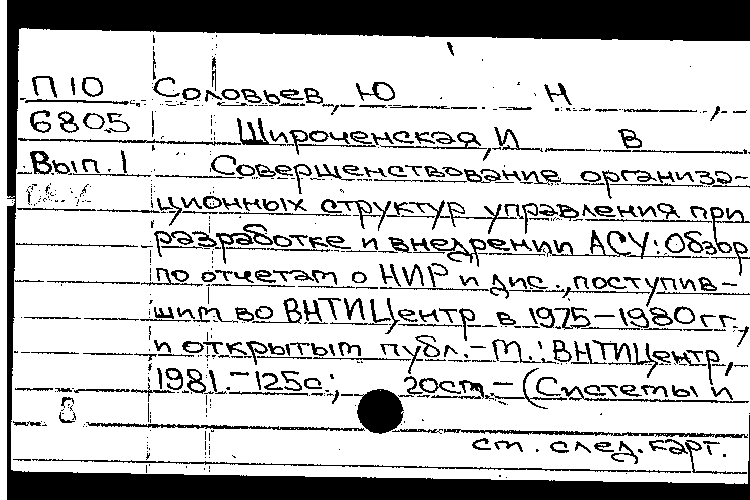 П 10 Соловьев, Ю Н ,
6805 Широченская, И В
Вып. 1 Совершенствование организа-
ционных структур управления при
разработке и внедрении АСУ: Обзор
по отчетам о НИР и дис., поступив-
шим во ВНТИЦентр в 1975-1980 гг.,
и открытым публ. - М.: ВНТИЦентр,
1981. - 125с.; 20см. - (Системы и
8
см. след. карт.